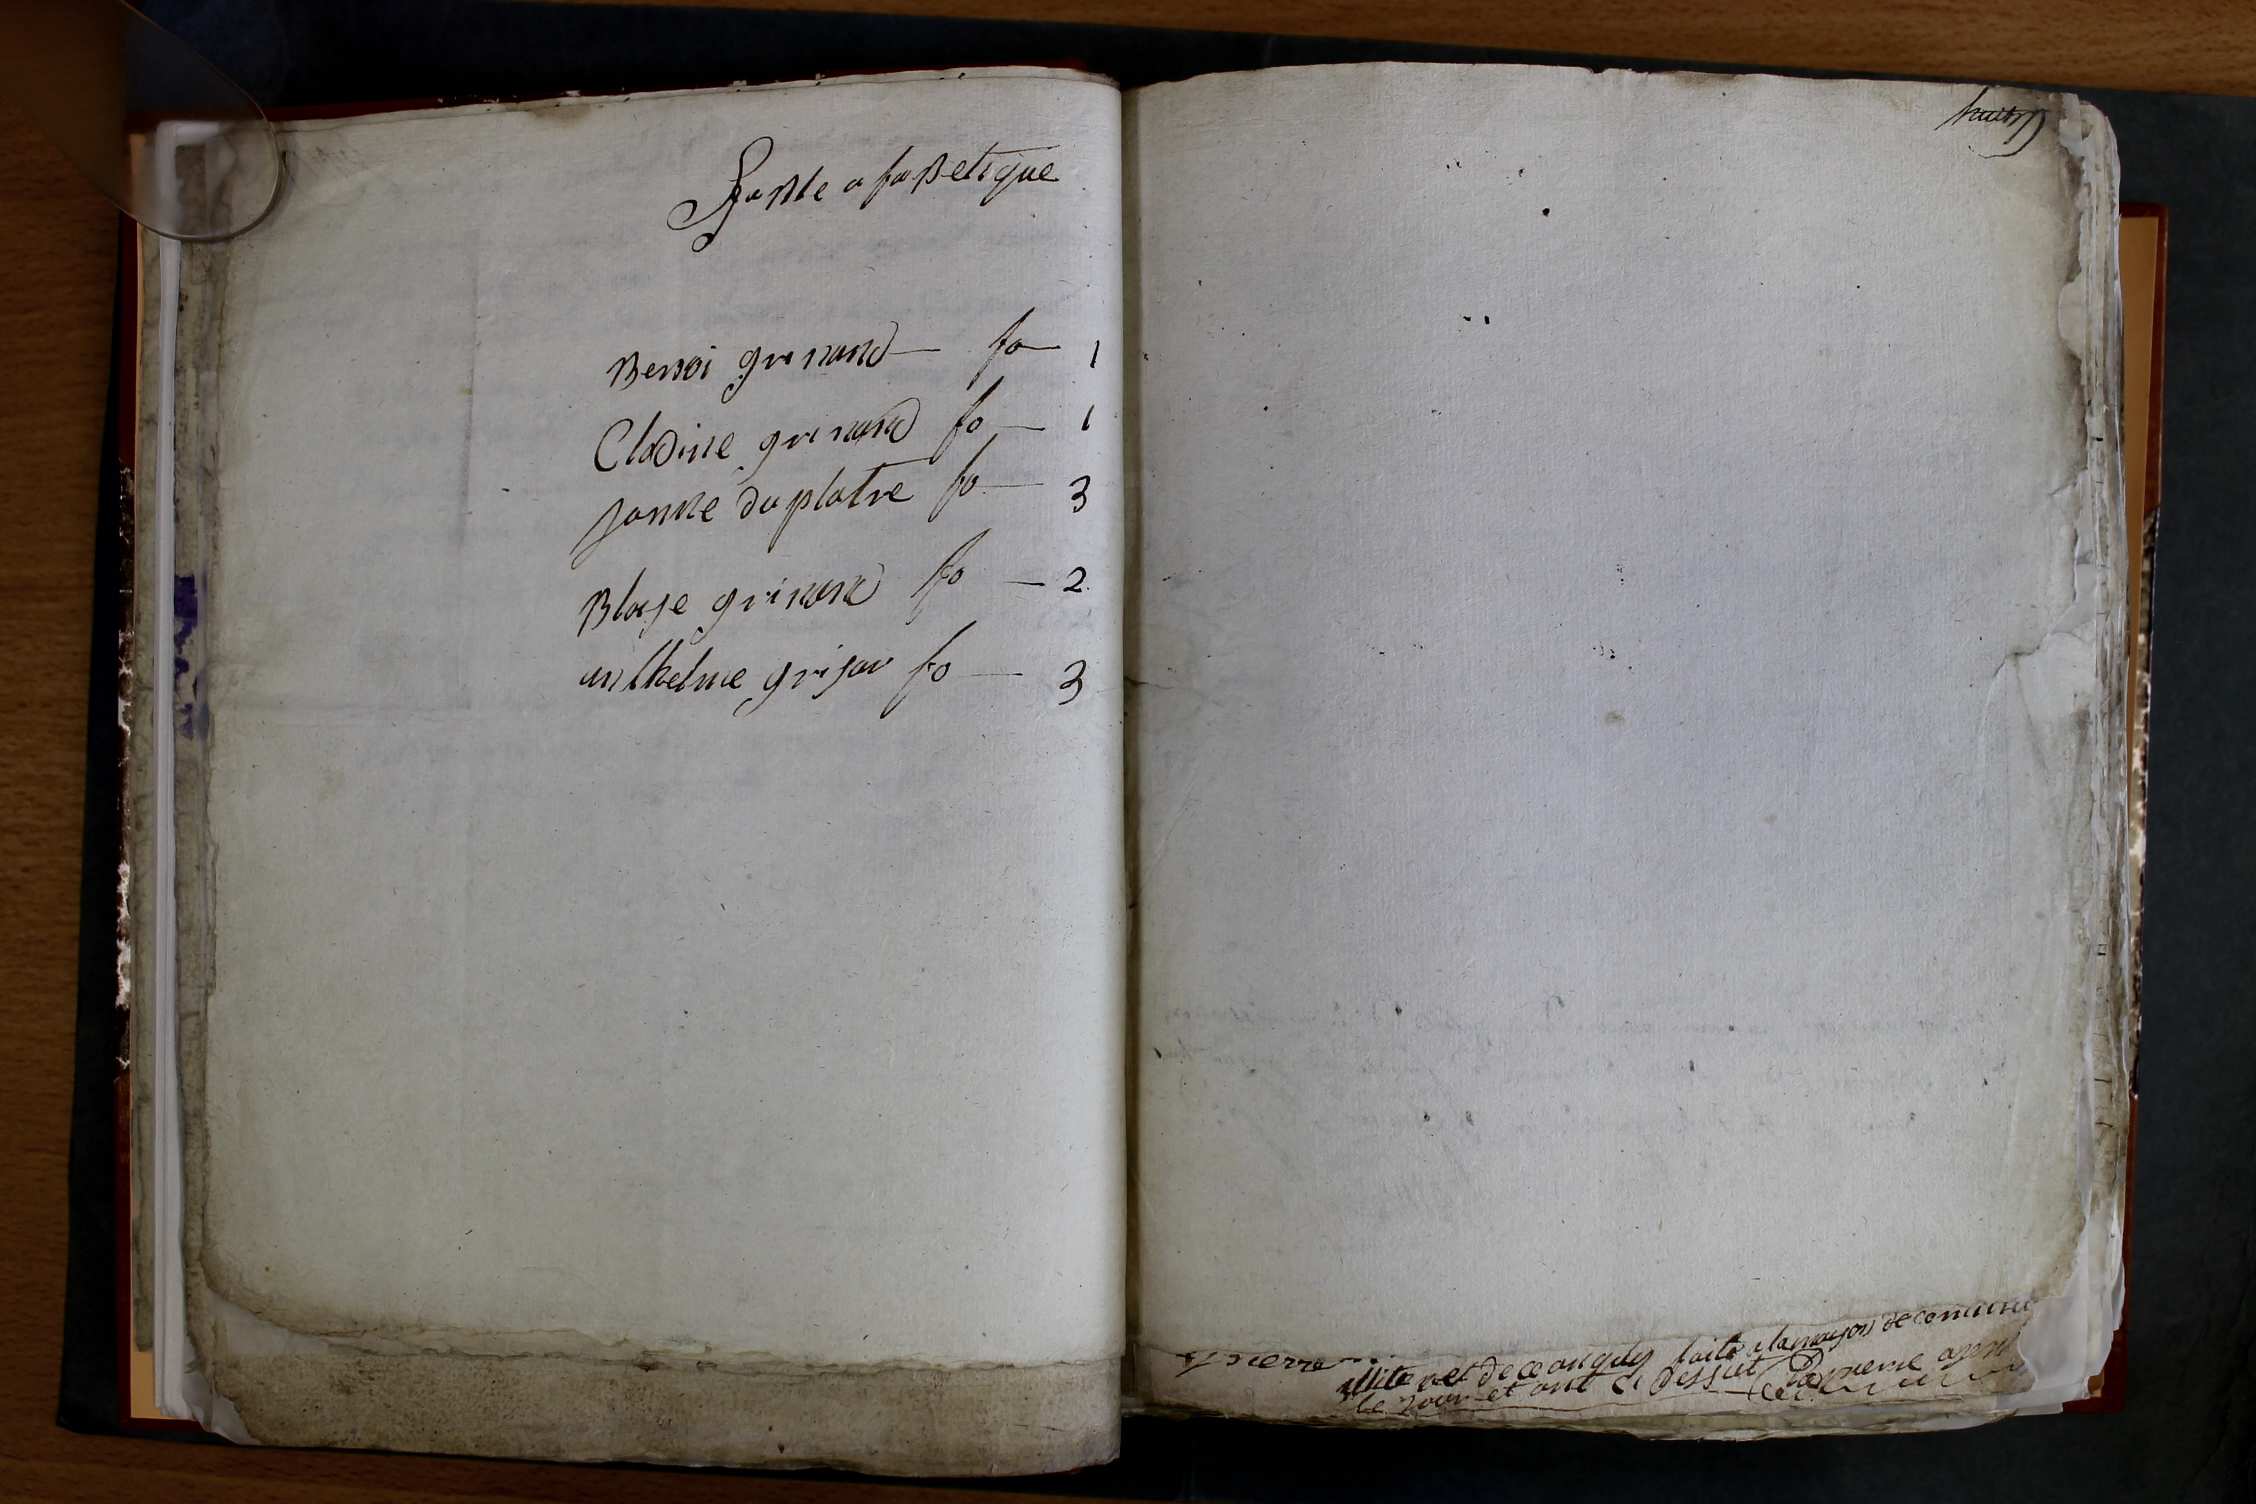 Table afabetique
Benoi grinand fo 1
Cladine grinand fo 1
janne duplatre fo 3
Blaise grinand fo 2
anthelme grisar fo 3
huit
pierre
faite a la mayson de comune
le jour et ant ci dessut